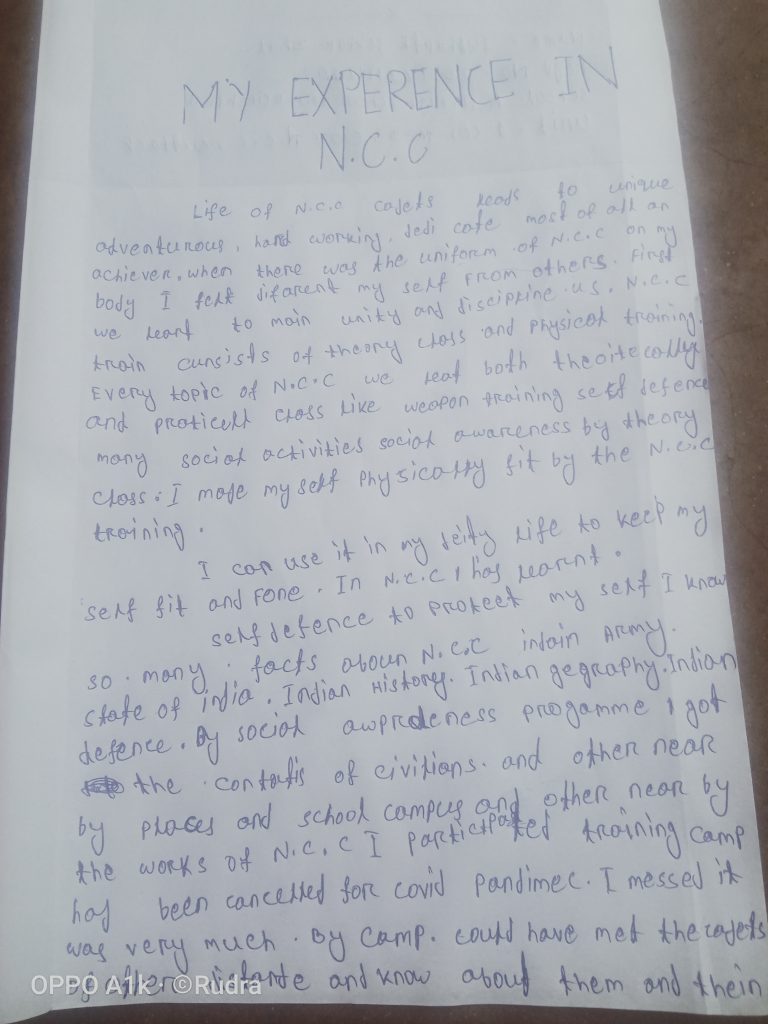 MY EXPERENCE IN
N.C.C
Life of N.C.C cadets leads to unique
adventurous, hard working, dedi cate most of all an
achiever. when there was the uniform of N.C.C on my
body I felt difarent my self From others. First
we leart to main unity and discipline. us. N.C.C
train cunsists of theory class and physical training.
Every topic of N.C.C we leat both theoitecally
and praticell class like weapon training self defence
many social activities social awareness by theory
class. I made myself physically fit by the N.C.C
training.
I can use it in my deity life to keep my
self fit and Fone. In N.C.C I has learnt.
self defence to protect my self I know
so many facts aboun N.C.C indain Army.
state of india. Indian History. Indian gegraphy. Indian
defence. By social awprdeness progamme I got
the contatis of civilians. and other near
by places and school campus and other near by
the works of N.C.C I participated training camp
had been cancelled for covid pandimec. I messed it
was very much. By camp. could have met the cadets
and know about them and thein
OPPO A1k · © Rudra